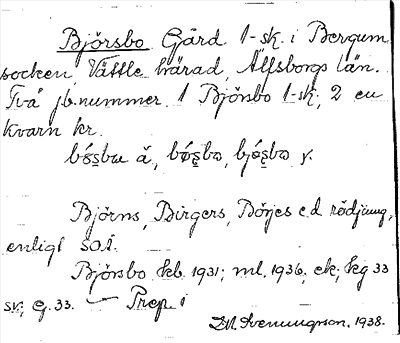 Björsbo Gård 1-sk. i Bergum
socken, Vättle härad, Älfsborgs län.
Två jb.nummer. 1 Björsbo 1-sk; 2 en
kvarn kr.
ä, y.
Björns, Birgers, Börjes e.d. rödjning,
enligt SOÄ.
Björsbo kb. 1931; ml. 1936, ek; kg 33
sv; G. 33. — Prep. i
1938.